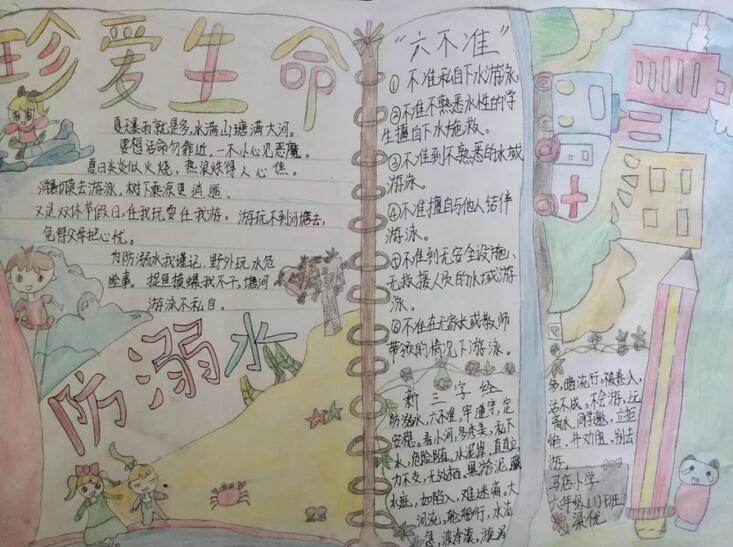 珍爱生命
夏天暴雨就是多，水满山塘满大河。
要想活命勿靠近，一不小心见恶魔。
夏日炎炎似火烧，热浪烘得人心焦。
消暑莫去游泳，树下乘凉更逍遥。
又是双休节假日，任我玩耍任我游。游玩不到河塘去，
免得父母把心忧。
为防溺水我谨记，野外玩水危
险事。捉鱼摸螺我不干，塘河
游泳不私自。
防溺水
“六不准”
①不准私自下水游泳
②不准不熟悉水性的学
生擅自下水施救。
③不准到不熟悉的水域
游泳。
④不准擅自与他人结伴
游泳。
⑤不准到无安全设施、
无救援人员的水域游
泳。
⑥不准在无家长或教师
带领的情况下游泳。
新三字经
防溺水，六不准，牢遵守，定
安稳。看小河，多秀美，私下
水，危险随。水泥岸，直直立，
力不支，无处
水底，如陷入，难迷痛。大
河流，轮船行，水流
急，波涛凑，漩涡
多，暗流行，被卷入，
活不成。不会游，远
离水，同学邀，立拒
绝，并劝阻，别去
游。
马店小学
六年级（1）班